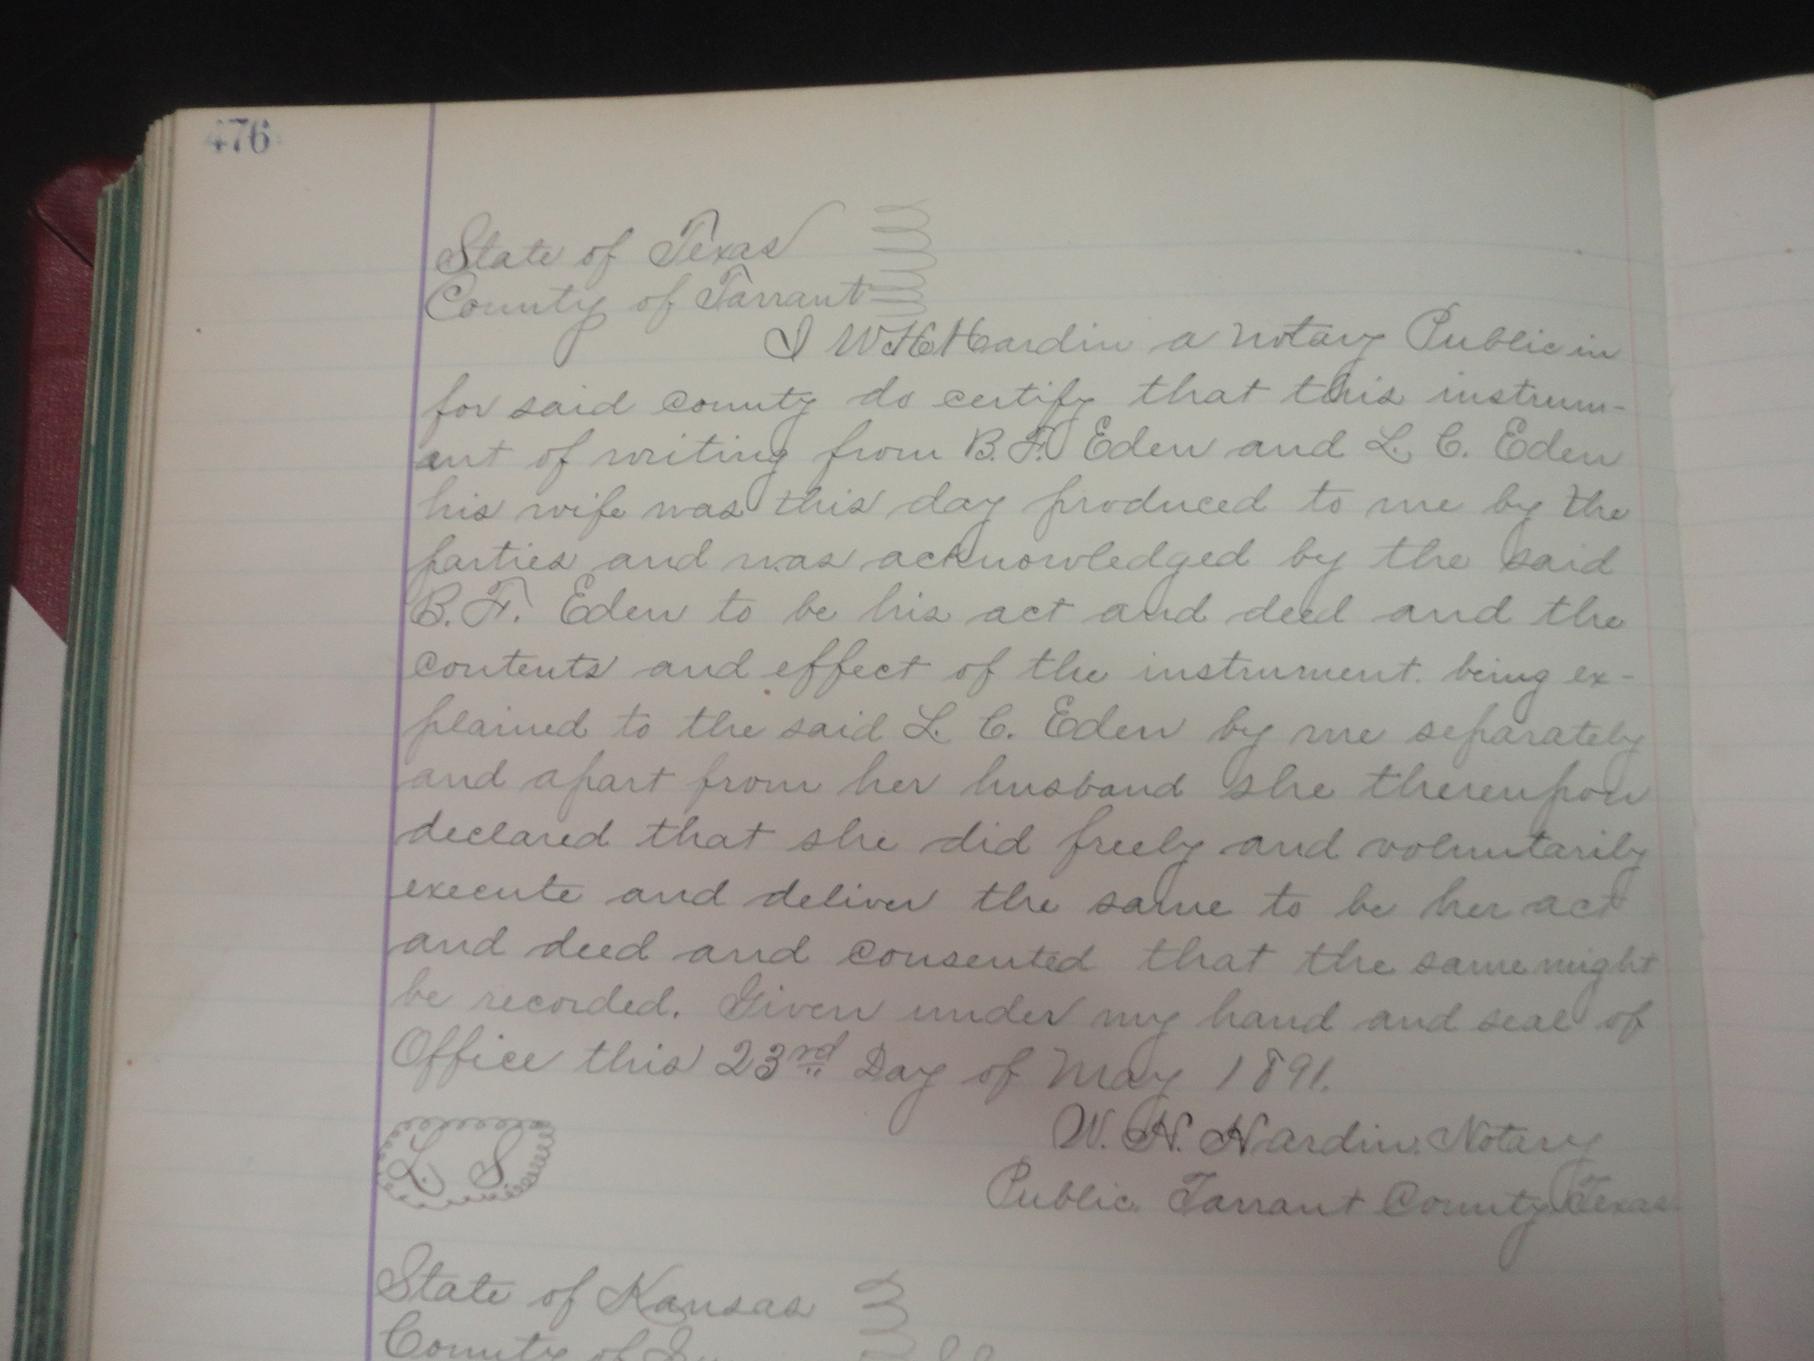 476
State of Texas
County of Tarrant
I W H Hardin a Notary Public in
for said county do certify that this instrum-
ent of writing from B. F. Eden and L. C. Eden
his wife was this day produced to me by the
parties and was acknowledged by the said
B. F. Eden to be his act and deed and the
contents and effect of the instrument. being ex-
plained to the said L. C. Eden by me separately
and apart from her husband she thereupon
declared that she did freely and voluntarily
execute and deliver the same to be her act
and deed and consented that the same might
be recorded. Given under my hand and seal of
Office this 23rd Day of May 1891.
W. H. Hardin. Notary
L. S.
Public Tarrant County Texas
State of Kansas
County of